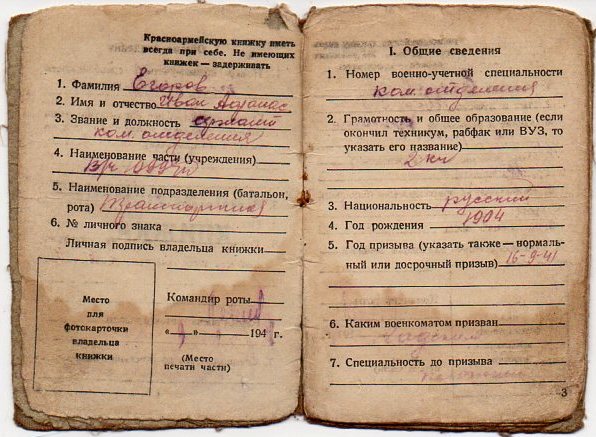 Красноармейскую книжку иметь
всегда при себе. Не имеющих
книжек — задерживать
1. Фамилия Егоров
2. Имя и отчество Иван Афанас
3. Звание и должность
ком. отделения
4. Наименование части (учреждения)
5. Наименование подразделения (батальон,
рота)
6. № личного знака
Личная подпись владельца книжки
Место
для
фотокарточки
владельца
книжки
Командир роты
" " 194 г.
(Место
печати части)
I. Общие сведения
1. Номер военно-учетной специальности
ком. отделения
2. Грамотность и общее образование (если
окончил техникум, рабфак или ВУЗ, то
указать его название)
2 кл
3. Национальность русский
4. Год рождения 1904
5. Год призыва (указать также — нормаль-
ный или досрочный призыв) 16-9-41
6. Каким военкоматом призван
7. Специальность до призыва
3